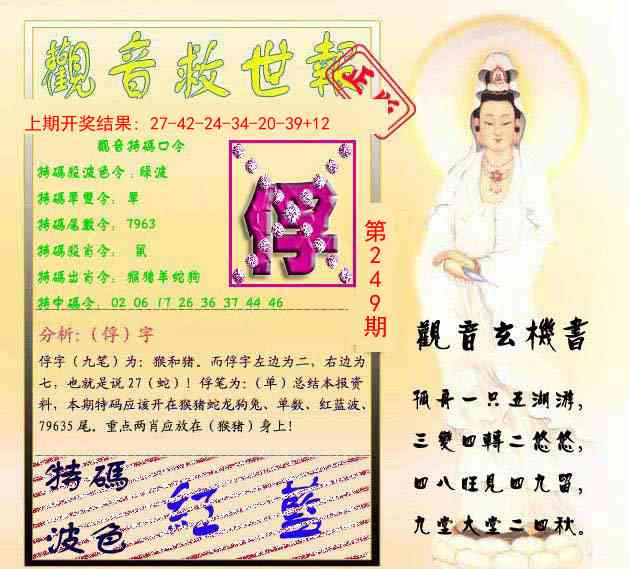 觀音救世報
正版
上期开奖结果: 27-42-24-34-20-39+12
觀音特碼口令
特碼殺波色令:綠波
特碼單雙令: 單
特碼尾數令: 7963
特碼殺肖令: 鼠
特碼出肖令: 猴豬羊蛇狗
特中碼令: 02 06 17 26 36 37 44 46
俘
第249期
分析:(俘)字
俘字(九笔)为: 猴和猪。而俘字左边为二, 右边为
七, 也就是说27(蛇)! 俘笔为:(单)总结本报资
料, 本期特码应该开在猴猪蛇龙狗兔、单数、红蓝波、
79635尾。重点两肖应放在(猴猪)身上!
特碼
波色
红 蓝
觀音玄機書
孤舟一只五湖游,
三變四轉二悠悠,
四八旺見四九留,
九堂大堂二四秋。